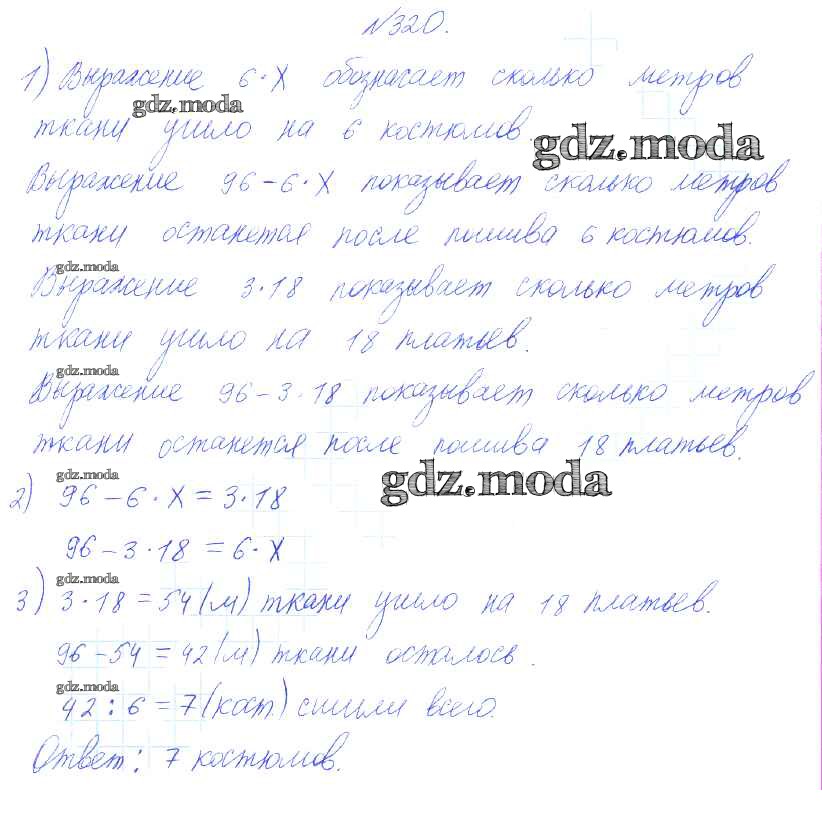 №320.
1) Выражение 6·X обозначает сколько метров
gdz.moda
ткани ушло на 6 костюмов.
gdz.moda
Выражение 96-6·X показывает сколько метров
ткани останется после пошива 6 костюмов.
gdz.moda
Выражение 3·18 показывает сколько метров
ткани ушло на 18 платьев.
gdz.moda
Выражение 96-3·18 показывает сколько метров
ткани останется после пошива 18 платьев.
gdz.moda
gdz.moda
2) 96-6·X=3·18
96-3·18=6·X
gdz.moda
3) 3·18=54(м) ткани ушло на 18 платьев.
96-54=42(м) ткани осталось.
gdz.moda
42:6=7(кост.) сшили всего.
Ответ: 7 костюмов.